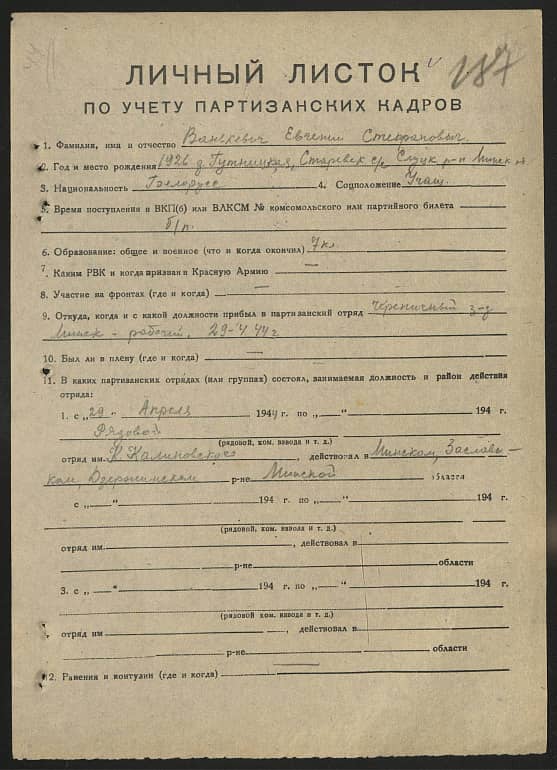 187
ЛИЧНЫЙ ЛИСТОК
ПО УЧЕТУ ПАРТИЗАНСКИХ КАДРОВ
1. Фамилия, имя и отчество Ванькевич Евгений Стефанович
2. Год и место рождения 1926 д. Гутницкая, с/с Слуцк р-н Минск
3. Национальность Белорусс 4. Соцположение Учащ.
5. Время поступления в ВКП(б) или ВЛКСМ № комсомольского или партийного билета —
б/п.
6. Образование: общее и военное (что и когда окончил) 7 кл.
7. Каким РВК и когда призван в Красную Армию —
8. Участие на фронтах (где и когда) —
9. Откуда, когда и с какой должности прибыл в партизанский отряд з-д
Минск - рабочий, 29-4 44 г
10. Был ли в плену (где и когда) —
11. В каких партизанских отрядах (или группах) состоял, занимаемая должность и район действия
отряда:
1. с „29" Апреля 1944 г. по „ " 194 г.
Рядовой
(рядовой, ком. взвода и т. д.)
отряд им. К. Калиновского, действовал в Минском, Заславь-
ком, Дзержинском р-не Минской области
с „ " 194 г. по „ " 194 г.
(рядовой, ком. взвода и т. д.)
отряд им. , действовал в
р-не области
3. с „ " 194 г. по „ " 194 г.
(рядовой, ком. взвода и т. д.)
отряд им , действовал в
р-не области
12. Ранения и контузии (где и когда) —